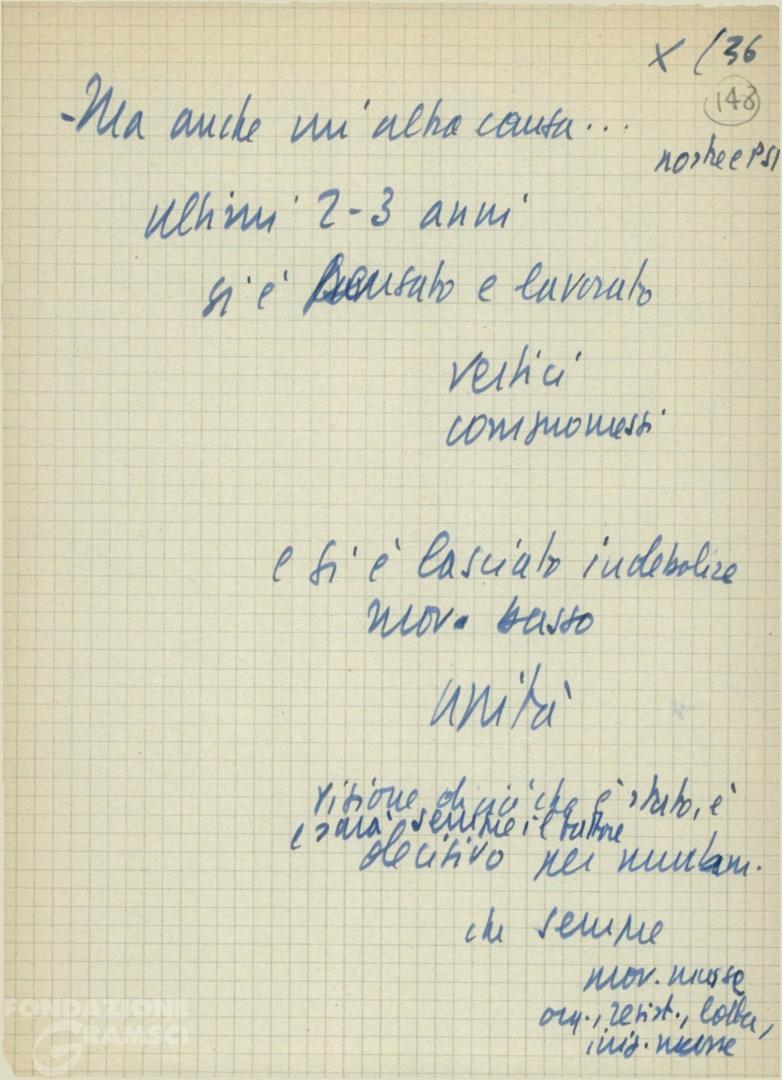 X / 36
148
- Ma anche un'altra causa...
nostre e PSI
ultimi 2-3 anni
si è pensato e lavorato
vertici
compromessi
e si è lasciato indebolire
mov. basso
unità
visione di ciò che è stato, è
e sarà sempre il fattore
decisivo per mutam.
che sempre
mov. masse
org., resist., lotta,
iniz. masse
FONDAZIONE
GRAMSCI